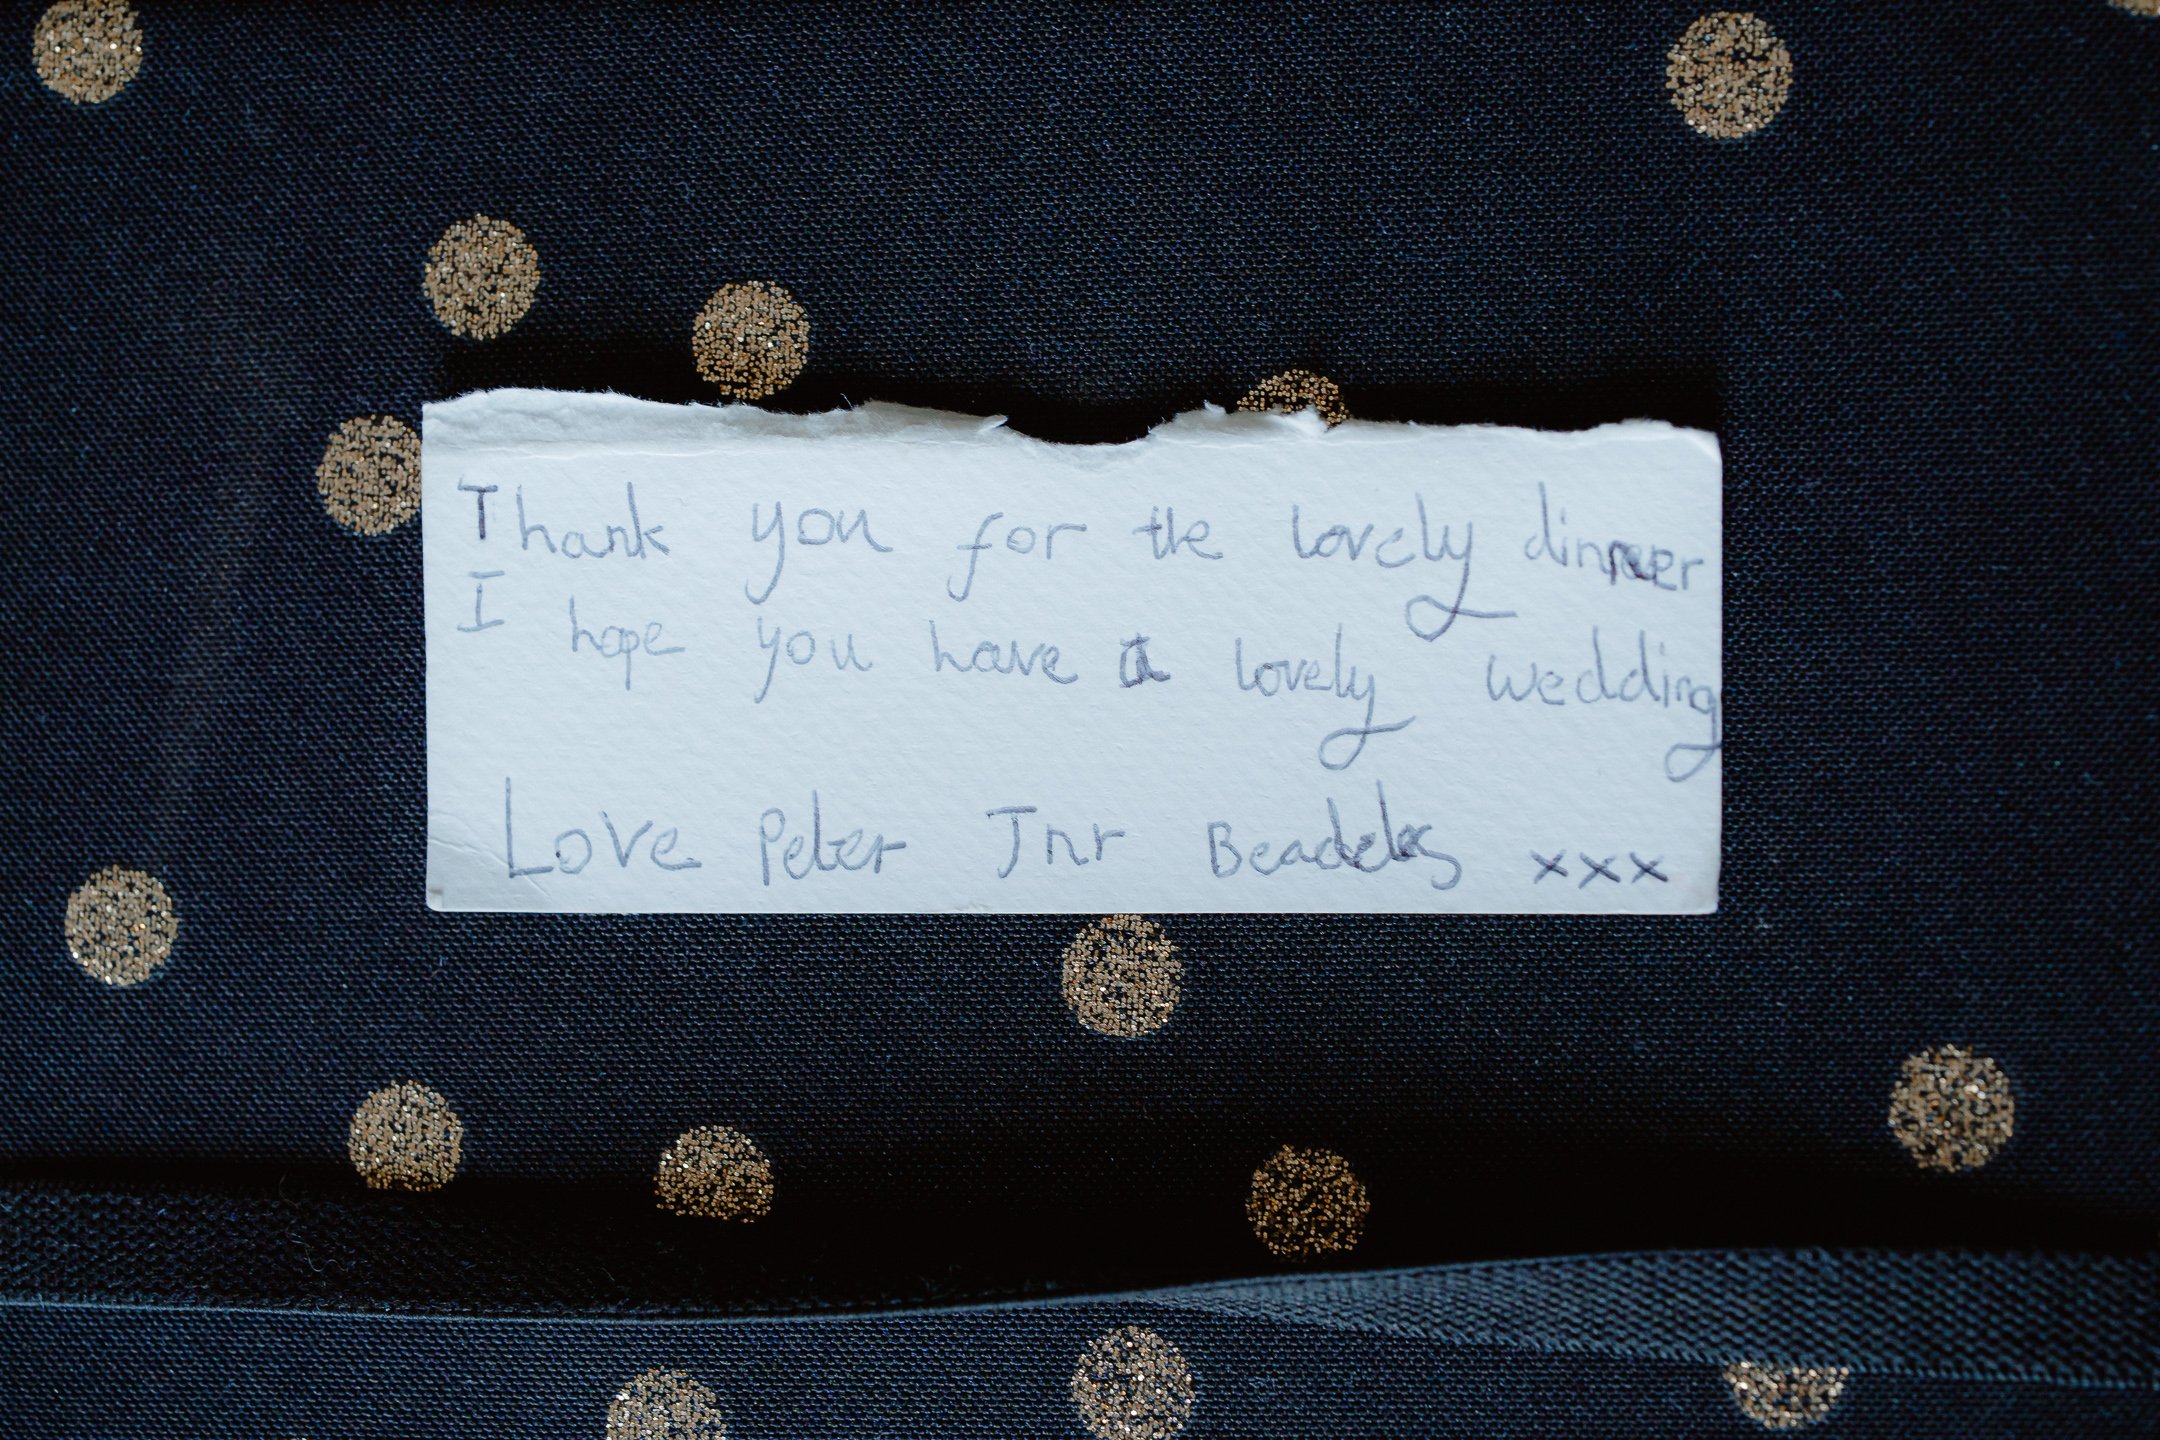 Thank you for the lovely dinner
I hope you have a lovely wedding
Love Peter Jnr xxx